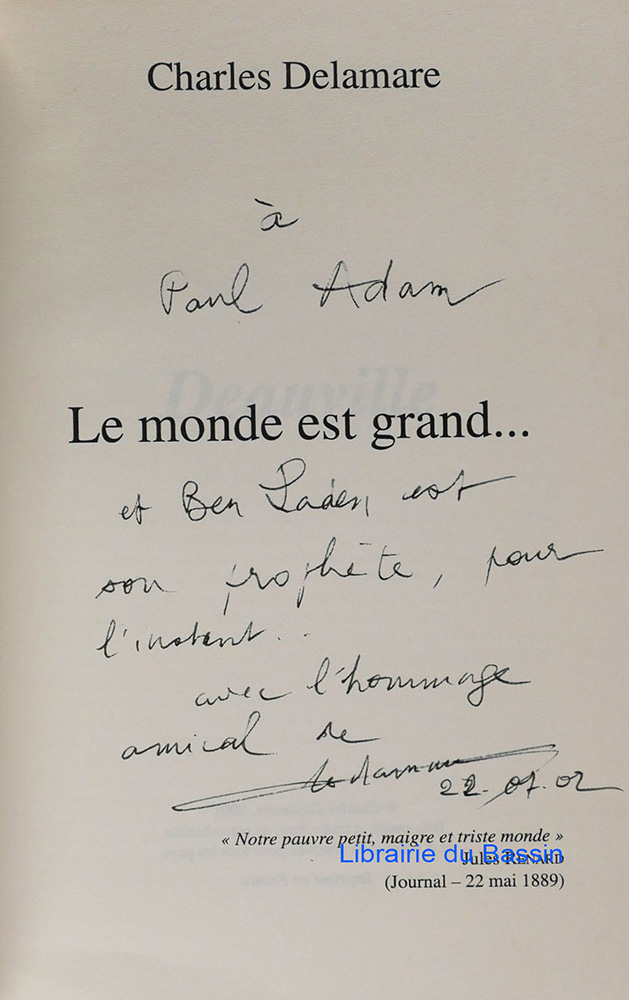 Charles Delamare
à
Paul Adam
Le monde est grand...
et Ben Laden est
son prophète, pour
l'instant..
avec l'hommage
amical de
22.07.02
« Notre pauvre petit, maigre et triste monde »
Jules RENARD
Librairie du Bassin
(Journal – 22 mai 1889)